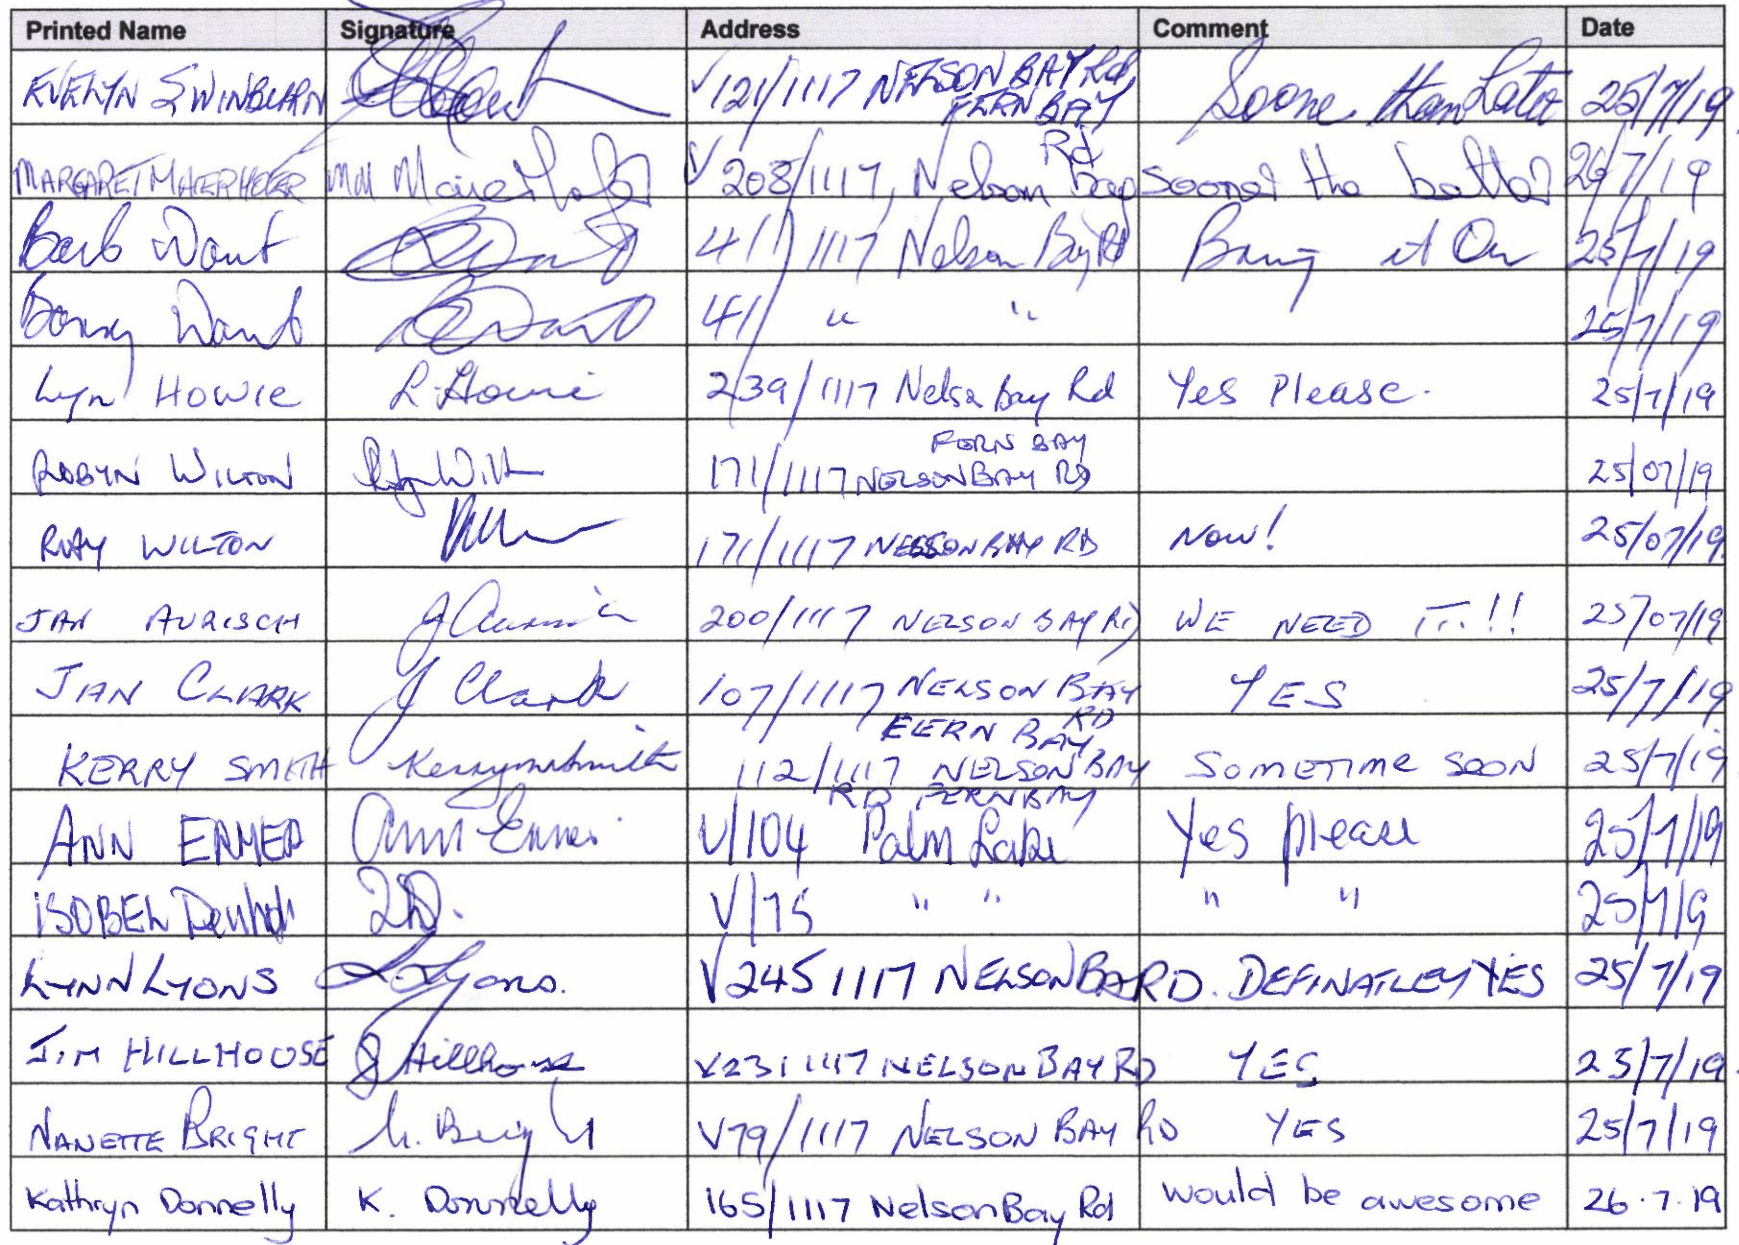 Printed Name Signature Address Comment Date
EVELYN SWINBURN V121/1117 NELSON BAY Rd, FERN BAY Soone than Later 25/7/19
MARGARET MAIERHOFER MM Maierhofer V 208/1117, Nelson Bay Rd sooner the better 26/7/19
Barb Want BWant 41/1117 Nelson Bay Rd Bring it On 25/7/19
Want 41/ " " 25/7/19
Lyn HOWIE L. Howie 239/1117 Nelso Bay Rd Yes Please. 25/7/19
ROBYN WILTON 171/1117 NELSON BAY RD FERN BAY 25/07/19
RAY WILTON 171/1117 NELSON BAY RD NOW! 25/07/19
JAN AURISCH J 200/1117 NELSON BAY RD WE NEED IT!! 25/07/19
JAN CLARK J Clark 107/1117 NELSON BAY RD FERN BAY YES 25/7/19
KERRY SMITH 112/1117 NELSON BAY RD FERN BAY SOMETIME SOON 25/7/19
ANN ERMER Ann Ermer V/104 Palm Lake Yes please 25/7/19
ISOBEL V/75 " " " " 25/7/19
LYNN LYONS L. Lyons. V245 1117 NELSON BA RD. DEFINATLEY YES 25/7/19
JIM HILLHOUSE J Hillhouse V231 1117 NELSON BAY RD YES 25/7/19
NANETTE BRIGHT N. Bright V79/1117 NELSON BAY RD YES 25/7/19
Kathryn Donnelly K. Donnelly 165/1117 Nelson Bay Rd would be awesome 26.7.19